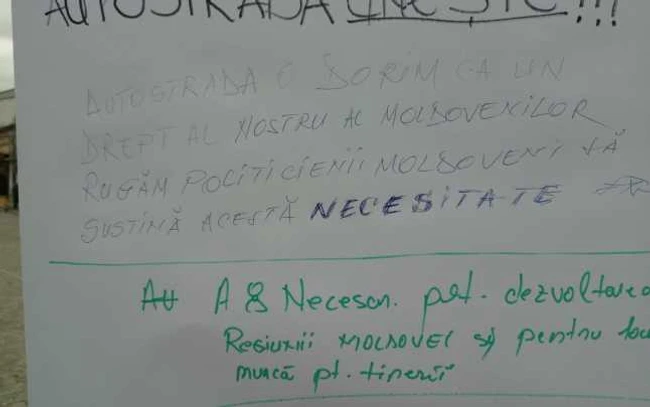 AUTOSTRADA UNEȘTE!!!
AUTOSTRADA O DORIM CA UN
DREPT AL NOSTRU AL MOLDOVENILOR
RUGĂM POLITICIENII MOLDOVENI SĂ
SUSTINĂ ACESTĂ NECESITATE
Au A8 Necesar. pt. dezvoltarea
Regiunii MOLDOVEI și pentru locu
muncă pt. tinerii